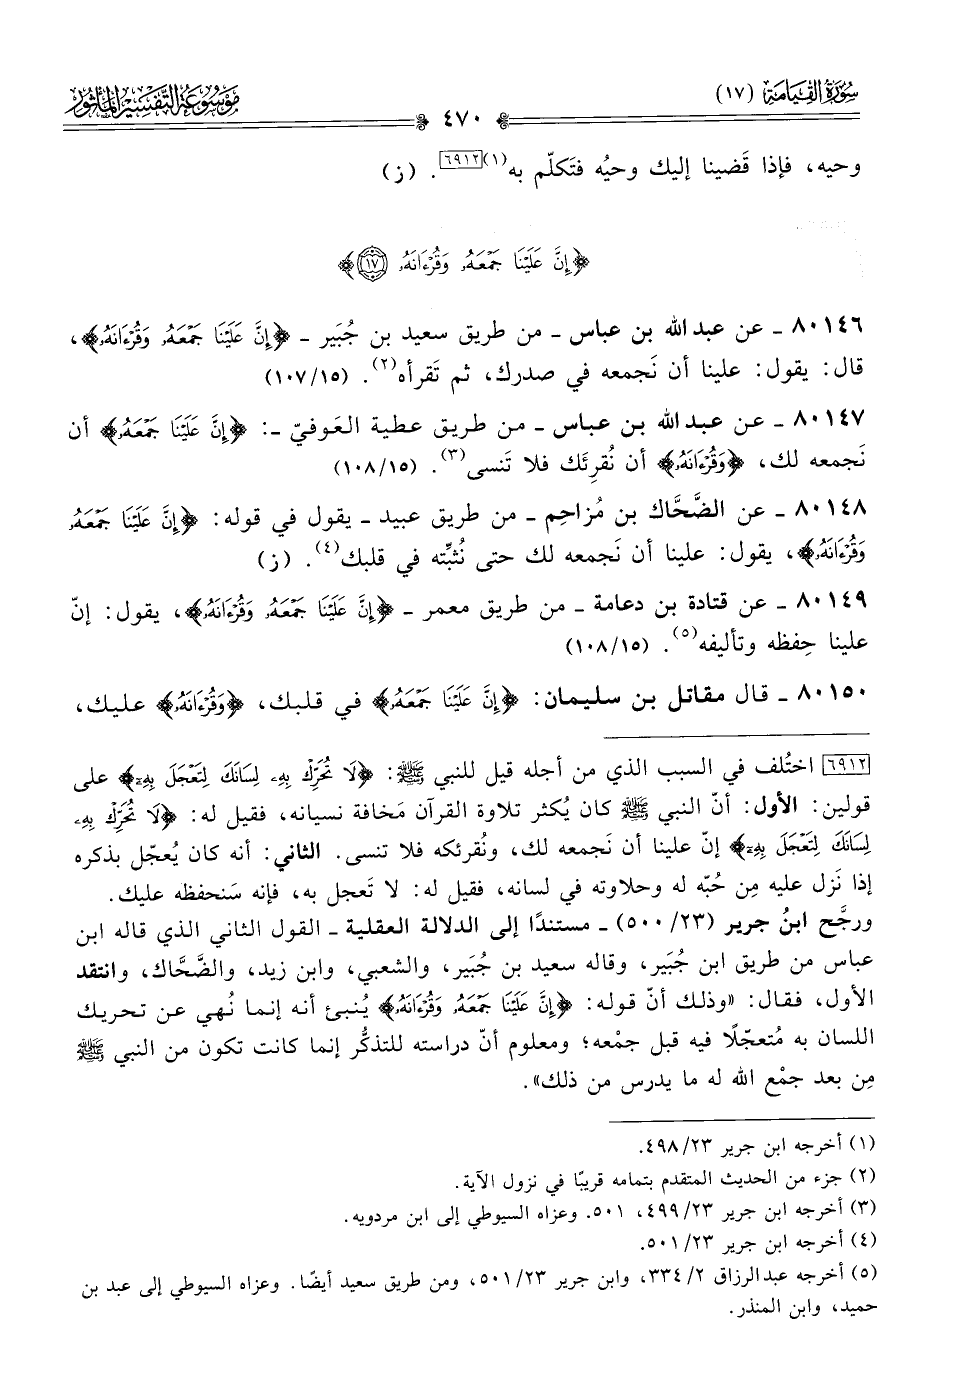 سُورَةُ القِيَامَة (١٧)
٤٧٠
مَوْسُوعَةُ التَّفْسِيرِ المَأْثُور
وحيه، فإذا قَضينا إليك وحيُه فتَكلّم به(١)[٦٩١٢]. (ز)
﴿إِنَّ عَلَيْنَا جَمْعَهُۥ وَقُرْءَانَهُۥ ١٧﴾
٨٠١٤٦ ـ عن عبد الله بن عباس ـ من طريق سعيد بن جُبَير ـ ﴿إِنَّ عَلَيْنَا جَمْعَهُۥ وَقُرْءَانَهُۥ﴾،
قال: يقول: علينا أن نَجمعه في صدرك، ثم تَقرأه(٢). (١٠٧/١٥)
٨٠١٤٧ ـ عن عبد الله بن عباس ـ من طريق عطية العَوفيّ ـ: ﴿إِنَّ عَلَيْنَا جَمْعَهُۥ﴾ أن
نَجمعه لك، ﴿وَقُرْءَانَهُۥ﴾ أن نُقرِئَك فلا تَنسى(٣). (١٠٨/١٥)
٨٠١٤٨ ـ عن الضَّحَّاك بن مُزاحِم ـ من طريق عبيد ـ يقول في قوله: ﴿إِنَّ عَلَيْنَا جَمْعَهُۥ
وَقُرْءَانَهُۥ﴾، يقول: علينا أن نَجمعه لك حتى نُثبِّته في قلبك(٤). (ز)
٨٠١٤٩ ـ عن قتادة بن دعامة ـ من طريق معمر ـ ﴿إِنَّ عَلَيْنَا جَمْعَهُۥ وَقُرْءَانَهُۥ﴾، يقول: إنّ
علينا حِفظه وتأليفه(٥). (١٠٨/١٥)
٨٠١٥٠ ـ قال مقاتل بن سليمان: ﴿إِنَّ عَلَيْنَا جَمْعَهُۥ﴾ في قلبك، ﴿وَقُرْءَانَهُۥ﴾ عليك،
[٦٩١٢] اختُلف في السبب الذي من أجله قيل للنبي ﷺ: ﴿لَا تُحَرِّكْ بِهِۦ لِسَانَكَ لِتَعْجَلَ بِهِۦٓ﴾ على
قولين: الأول: أنّ النبي ﷺ كان يُكثر تلاوة القرآن مَخافة نسيانه، فقيل له: ﴿لَا تُحَرِّكْ بِهِۦ
لِسَانَكَ لِتَعْجَلَ بِهِۦٓ﴾ إنّ علينا أن نَجمعه لك، ونُقرئكه فلا تنسى. الثاني: أنه كان يُعجّل بذكره
إذا نَزل عليه مِن حُبّه له وحلاوته في لسانه، فقيل له: لا تَعجل به، فإنه سَنحفظه عليك.
ورجَّح ابنُ جرير (٥٠٠/٢٣) ـ مستندًا إلى الدلالة العقلية ـ القول الثاني الذي قاله ابن
عباس من طريق ابن جُبَير، وقاله سعيد بن جُبَير، والشعبي، وابن زيد، والضَّحَّاك، وانتقد
الأول، فقال: «وذلك أنّ قوله: ﴿إِنَّ عَلَيْنَا جَمْعَهُۥ وَقُرْءَانَهُۥ﴾ يُنبئ أنه إنما نُهي عن تحريك
اللسان به مُتعجّلًا فيه قبل جمْعه؛ ومعلوم أنّ دراسته للتذكُّر إنما كانت تكون من النبي ﷺ
مِن بعد جمْع الله له ما يدرس من ذلك».
(١) أخرجه ابن جرير ٤٩٨/٢٣.
(٢) جزء من الحديث المتقدم بتمامه قريبًا في نزول الآية.
(٣) أخرجه ابن جرير ٤٩٩/٢٣، ٥٠١. وعزاه السيوطي إلى ابن مردويه.
(٤) أخرجه ابن جرير ٥٠١/٢٣.
(٥) أخرجه عبد الرزاق ٣٣٤/٢، وابن جرير ٥٠١/٢٣، ومن طريق سعيد أيضًا. وعزاه السيوطي إلى عبد بن
حميد، وابن المنذر.